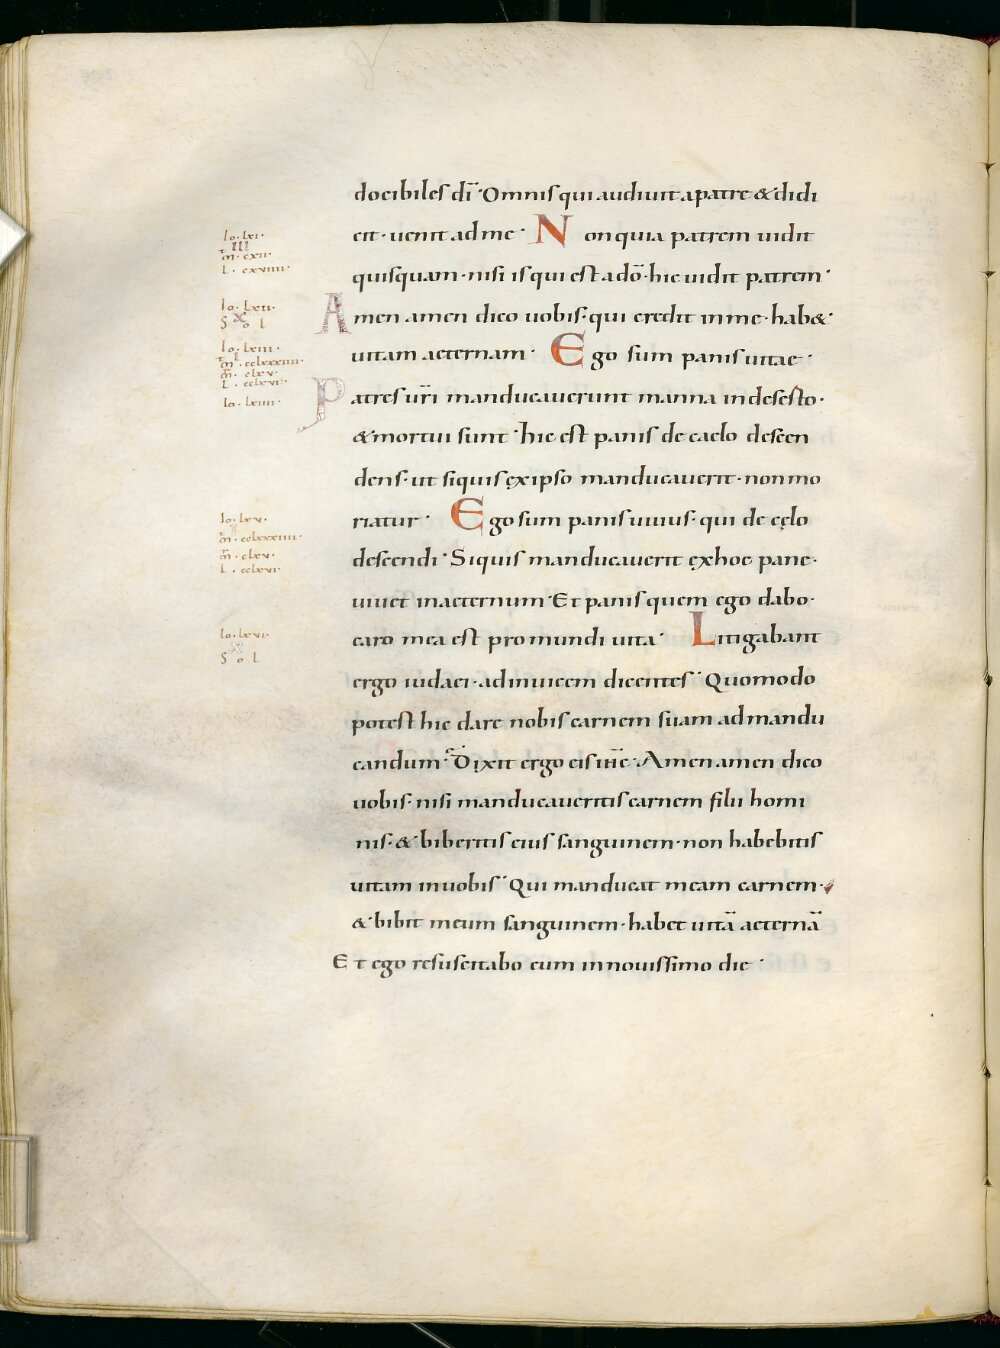 docibiles dī· Omnis qui audiuit a patre & didi
cit· uenit ad me· Non quia patrem uidit
Io· lxi·
III
m̄· cxii·
L· cxviiii·
quisquam· nisi is qui est a dō· hic uidit patrem·
Io· lxii·
X
S o l
Amen amen dico uobis· qui credit in me· hab&·
Io· lxiii·
I
m̄· cclxxxiiii·
m̄· clxv·
L· cclxvi·
uitam aeternam· Ego sum panis uitae·
Io· lxiiii·
Patres ur̄i manducauerunt manna in deserto·
& mortui sunt· hic est panis de caelo descen
dens· ut siquis ex ipso manducauerit· non mo
Io· lxv·
m̄· cclxxxiiii·
m̄· clxv·
L· cclxvi·
riatur· Ego sum panis uiuus· qui de cęlo
descendi· Siquis manducauerit ex hoc pane·
uiuet in aeternum· Et panis quem ego dabo·
Io· lxvi·
X
S o l
caro mea est pro mundi uita· Litigabant
ergo iudaei· ad inuicem dicentes· Quomodo
potest hic dare nobis carnem suam ad mandu
candum· Dixit ergo eis ihc̄· Amen amen dico
uobis· nisi manducaueritis carnem filii homi
nis· & biberitis eius sanguinem· non habebitis
uitam in uobis· Qui manducat meam carnem·
& bibit meum sanguinem· habet uitā aeternā
Et ego resuscitabo eum in nouissimo die·